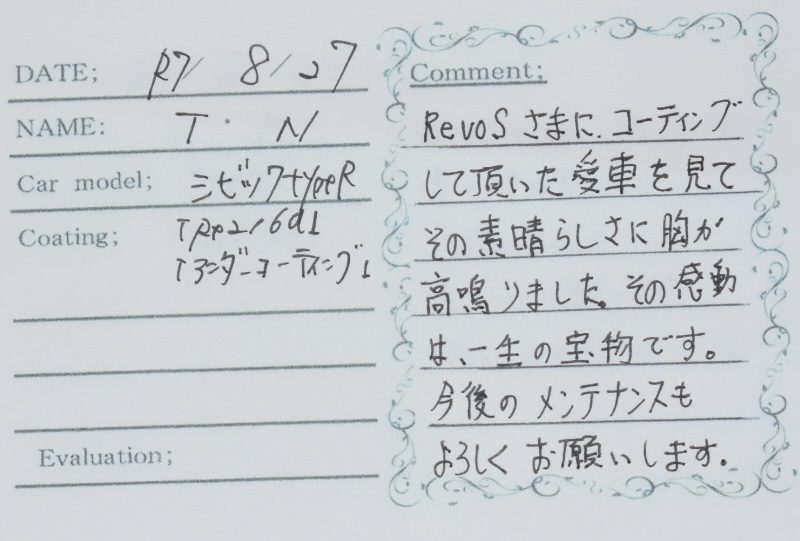 DATE; R7/ 8/27
NAME: T・N
Car model; シビックtypeR
Coating;
「アンダーコーティング」
Evaluation;
Comment;
RevoSさまに、コーティング
して頂いた愛車を見て
その素晴らしさに胸が
高鳴りました。その感動
は、一生の宝物です。
今後のメンテナンスも
よろしくお願いします。